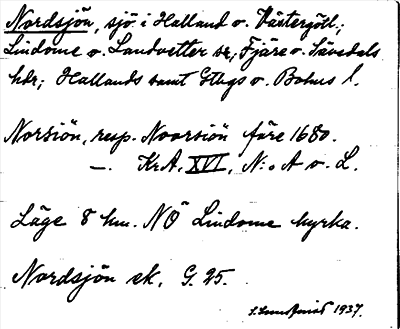 Nordsjön, sjö i Halland o. Västergötl;
Lindome o. Landvetter sr; Fjäre o. Sävedals
hdr; Hallands samt Gtbgs o. Bohus l.
Norsiön, resp. Noorsiön före 1680.
—. Kr.A. XVI, N:o A o. L.
Läge 8 km. NÖ Lindome kyrka.
Nordsjön ek. G. 25.
1937.